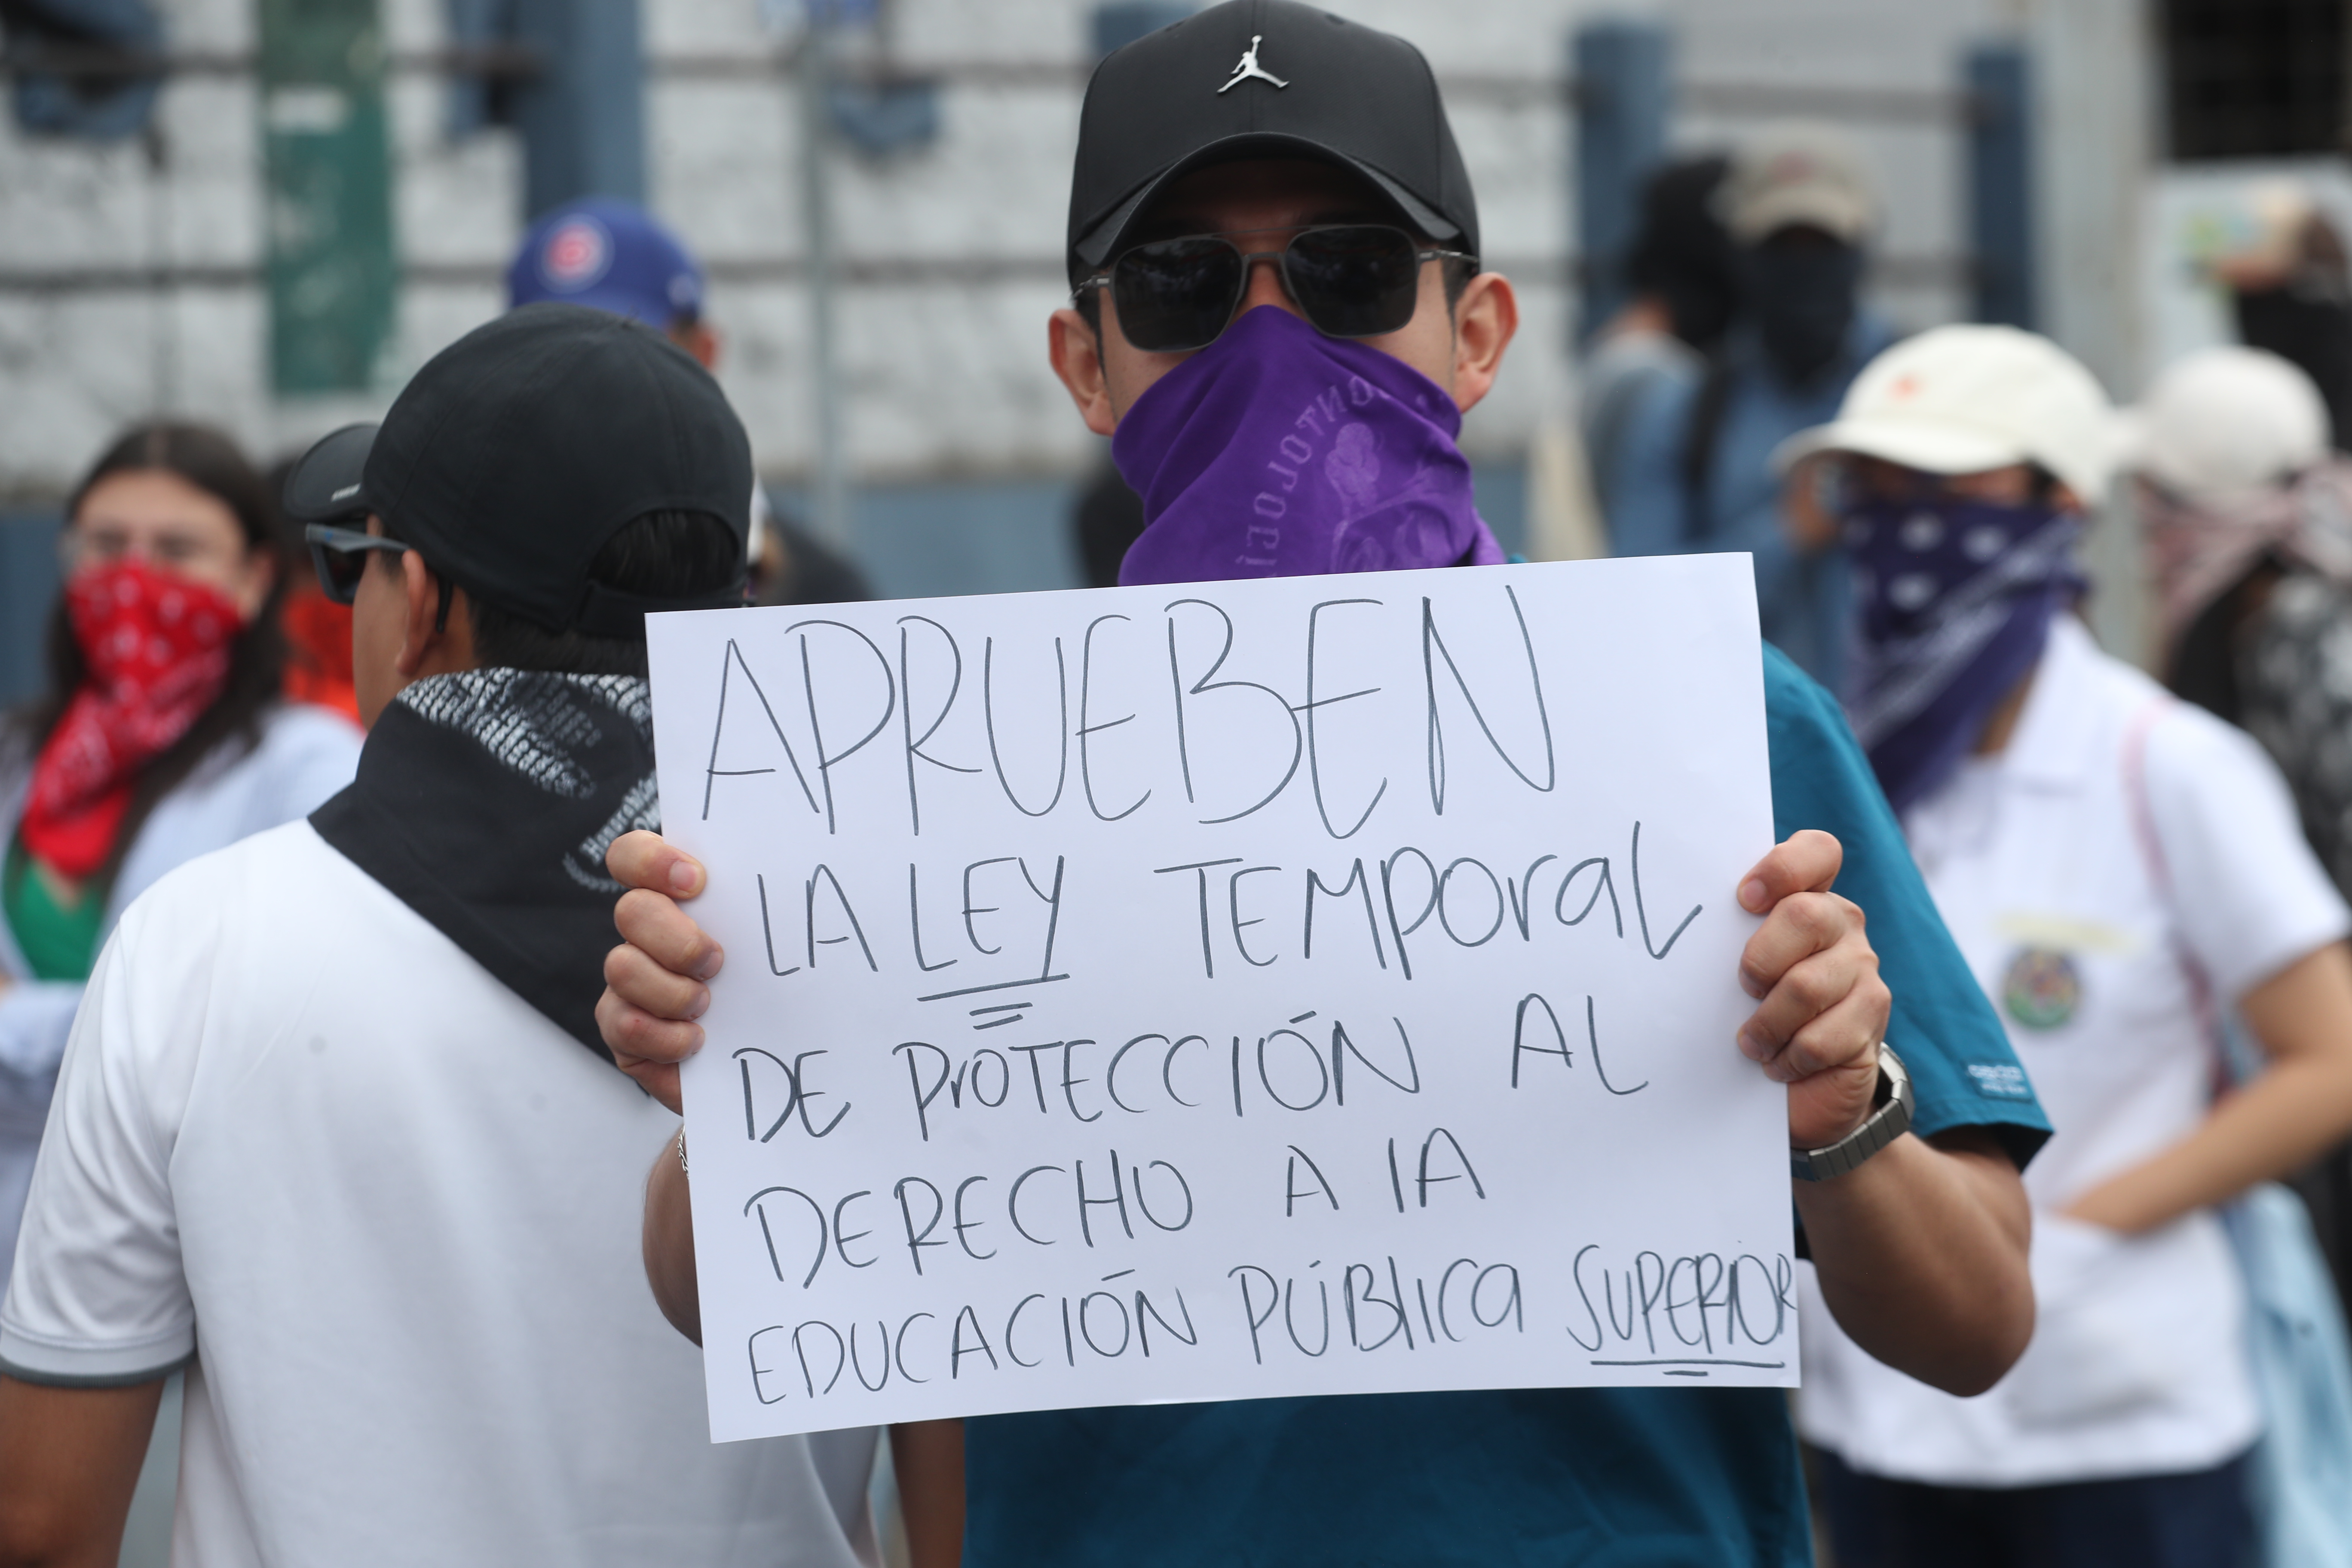 APRUEBEN
LA LEY TEMPORAL
DE PROTECCIÓN AL
DERECHO A LA
EDUCACIÓN PÚBLICA SUPERIOR